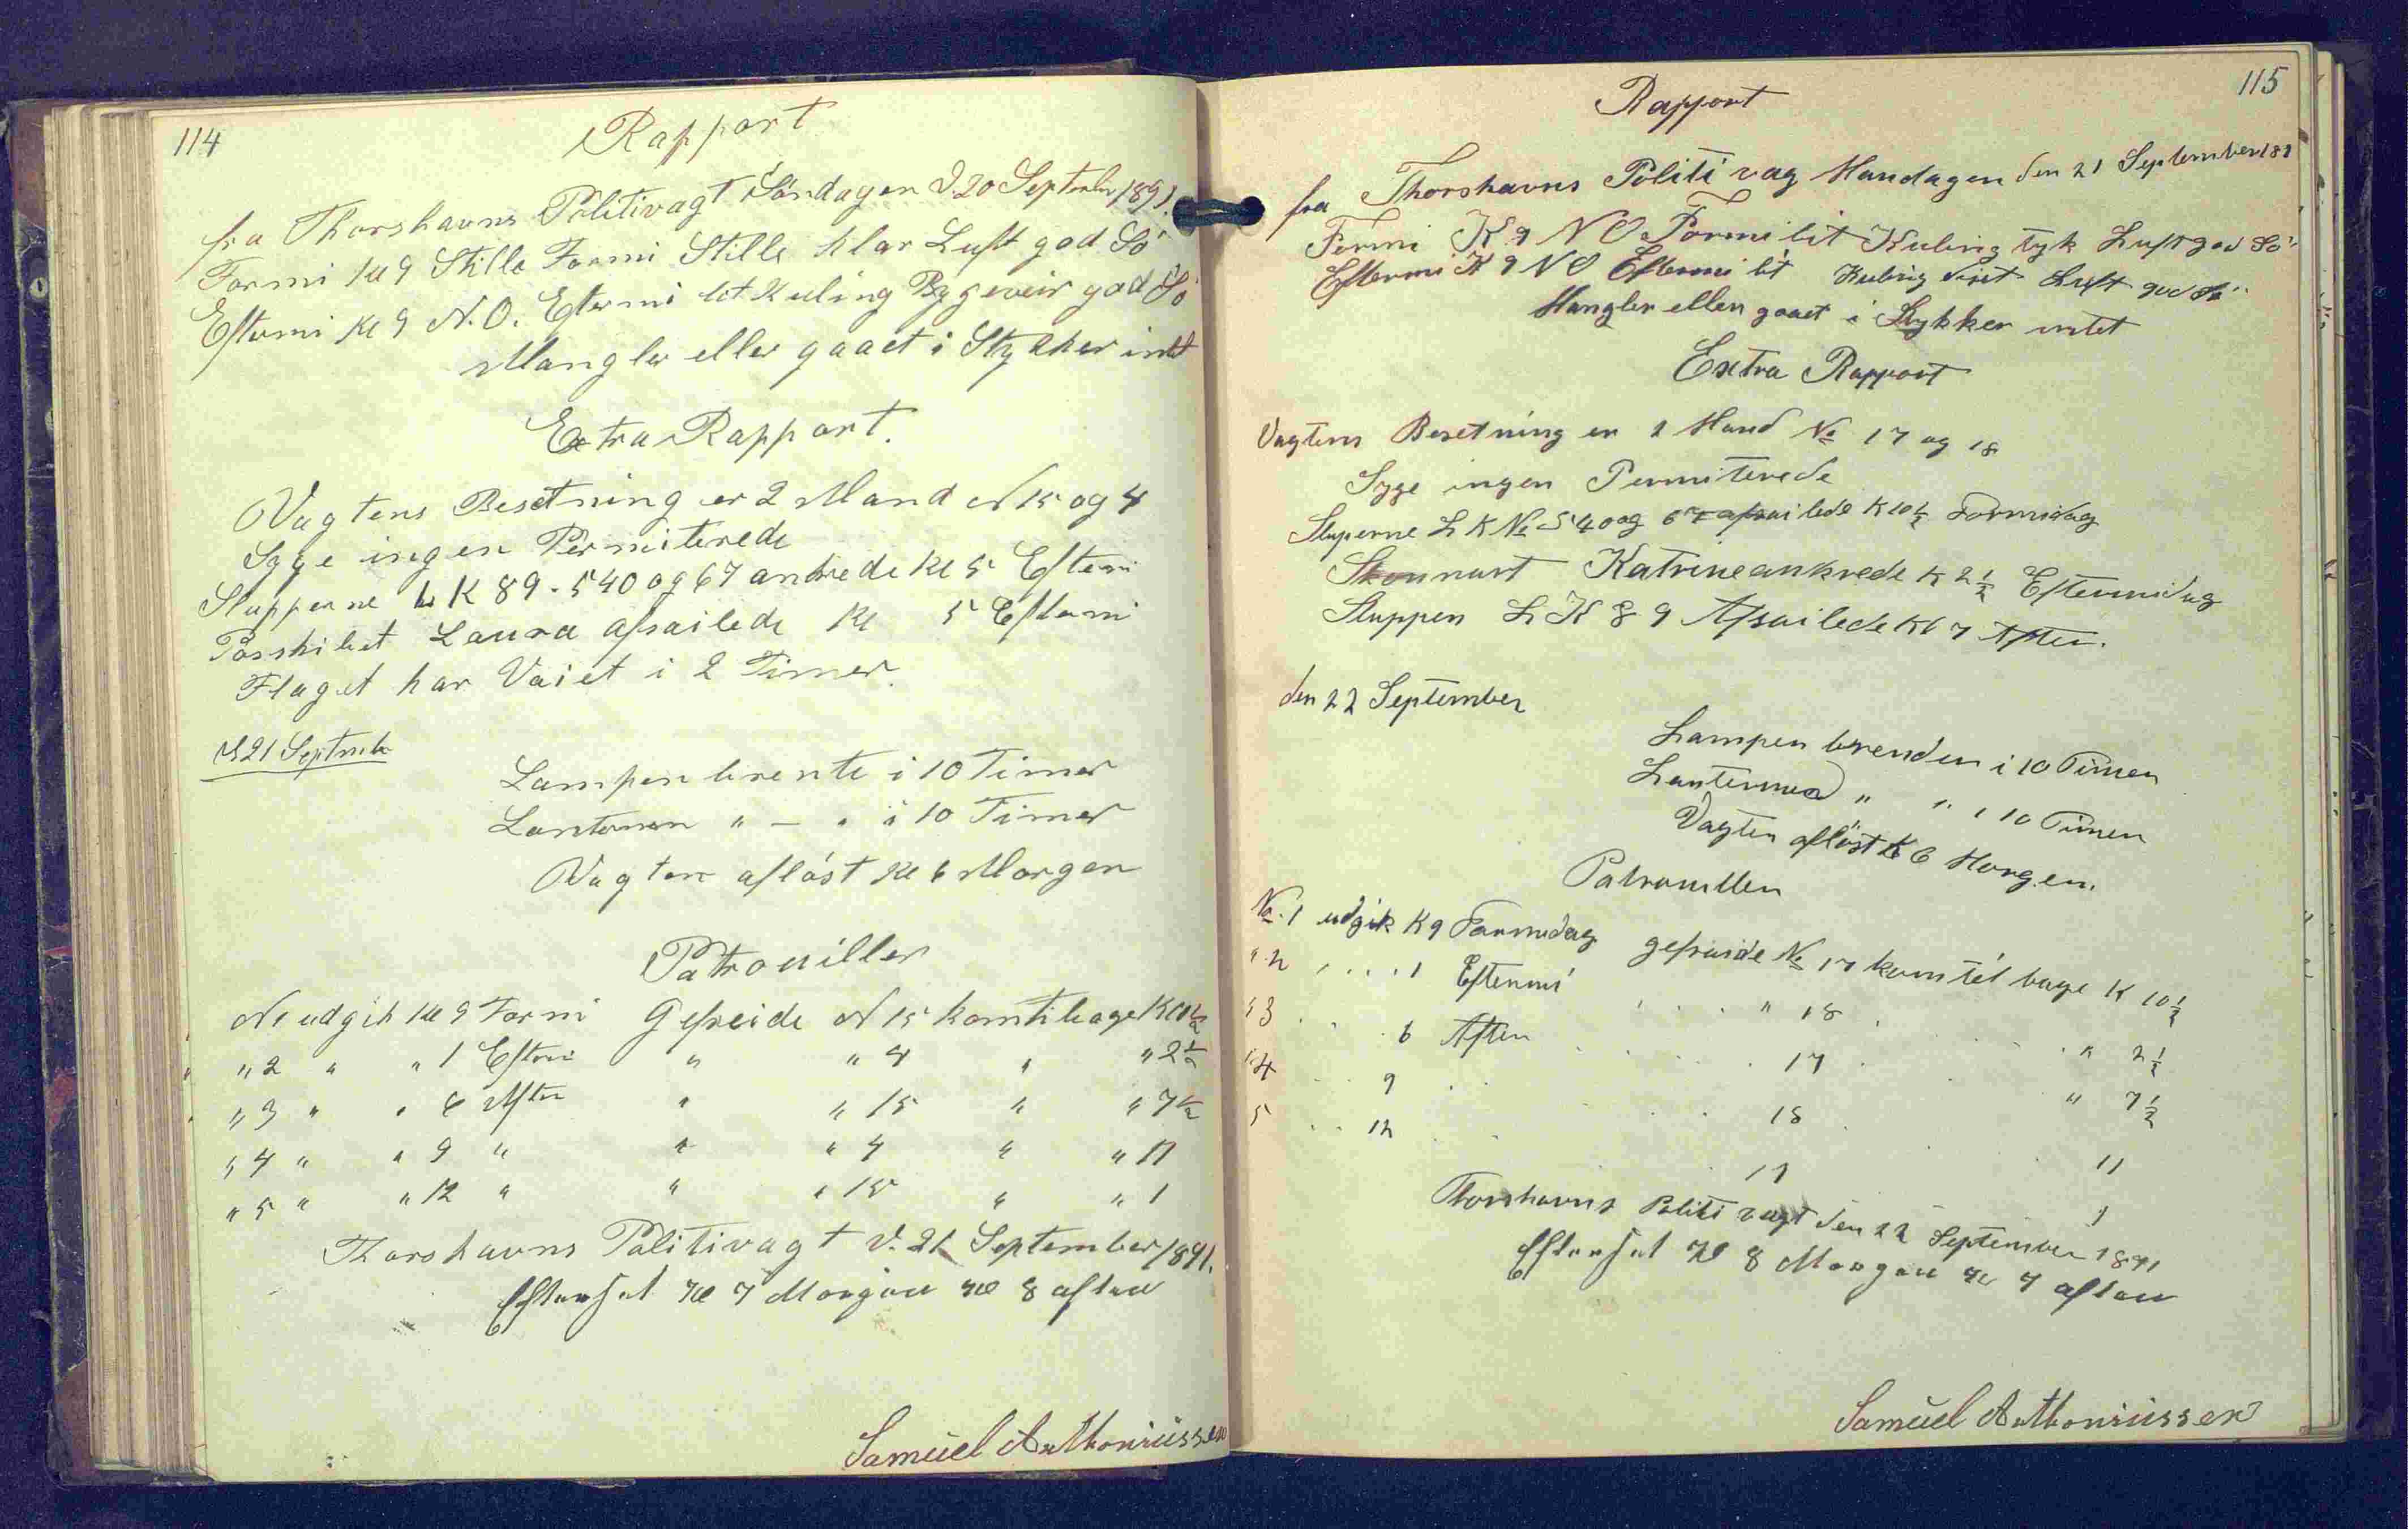 114
Rapport
fra Thorshavns Politivagt Söndagen d. 20 September 1891.
Formi Kl 9 Stille Formi Stille klar Luft god Sö
Eftermi Kl 9 N.O. Eftermi let Kuling Bygeveir god Sö
Mangler eller gaaet i Stykker intet
Extra Rapport.
Vagtens Besetning er 2 Mand N 15 og 4
Syge ingen Permiterede
Slupperne L K 89 - 540 og 67 ankrede Kl 5 Eftermi
Postskibet Laura afsailede Kl 5 Eftermi
Flaget har Vaiet i 2 Timer.
d 21 Septmbr
Lampen brente i 10 Timer
Lanternen " — " i 10 Timer
Vagten aflöst Kl 6 Morgen
Patrouiller
N 1 udgik Kl 9 Formi Gefreide N 15 kom tilbage Kl 10½
" 2 " " 1 Eftermi " " 4 " " 2½
" 3 " " 6 Aften " " 15 " " 7½
" 4 " " 9 " " " 4 " " 11
" 5 " " 12 " " " 15 " " 1
Thorshavns Politivagt d. 21 September 1891.
Efterset Kl 7 Morgen Kl 8 aften
Samuel Anthoniussen
115
Rapport
fra Thorshavns Politi vag Mandagen den 21 September 189
Formi K 9 NO Formi lit Kuling tyk Luft god Sö
Eftermi K 9 NO Eftermi lit Kuling Luft god Sö
Mangler eller gaaet i Stykker intet
Extra Rapport
Vagtens Besetning er 2 Mand No 17 og 18
Syge ingen Permiterede
Sluperne L K No 540 og 67 afsailede K 10½ Formidag
Skonnart Katrine ankrede K 2½ Eftermidag
Sluppen L K 89 Afsailede Kl 7 Aften.
den 22 September
Lampen brenden i 10 Timer
Lanterne " " i 10 Timer
Vagten aflöst K 6 Morgen.
Patrouiller
No. 1 udgik K 9 Formidag gefraide No 17 kom tel bage K 10½
" 2 . . . . 1 Eftermi . . . " 18 . . " 2½
" 3 . . . 6 Aften . . . 17 . . " 7½
" 4 . . 9 . . . 18 . 11
5 . . 12 . . 17 1
Thorshavns Politi vagt den 22 September 1891
Efterset Kl 8 Morgen Kl 7 aften
Samuel Anthoniussen